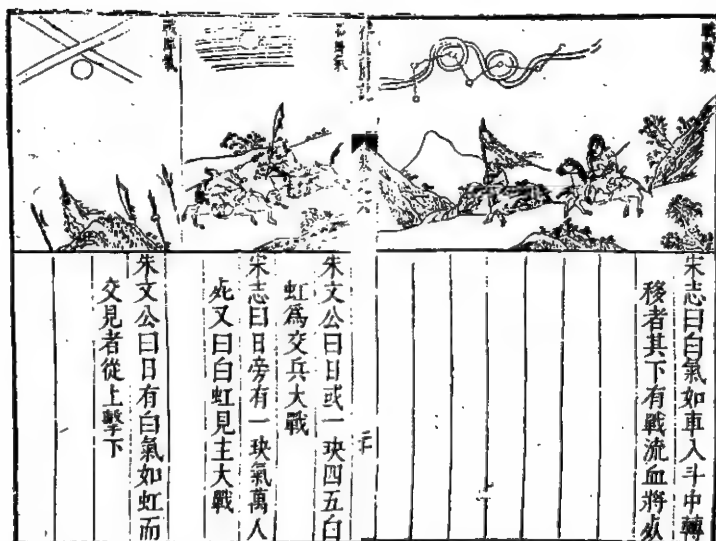 戰陣氣
宋志曰白氣如車入斗中轉
移者其下有戰流血將敗
朱文公曰日或一玦四五白
虹爲交兵大戰
宋志曰日旁有一玦氣萬人
死又曰白虹見主大戰
戰陣氣
朱文公曰日有白氣如虹而
交見者從上擊下